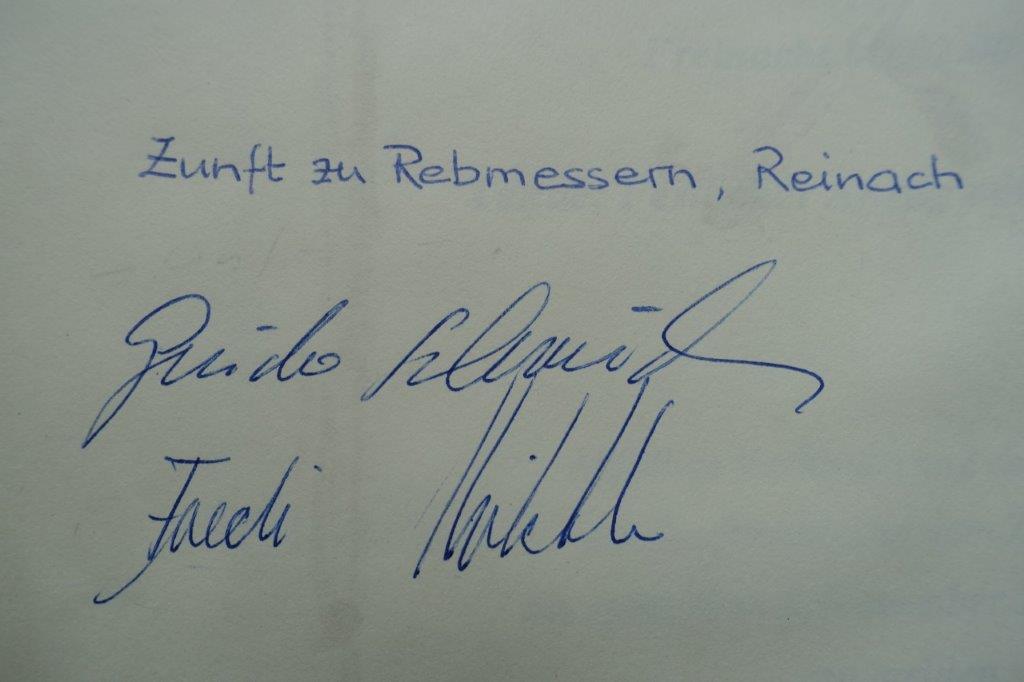 Zunft zu Rebmessern, Reinach
Guido Schmidt